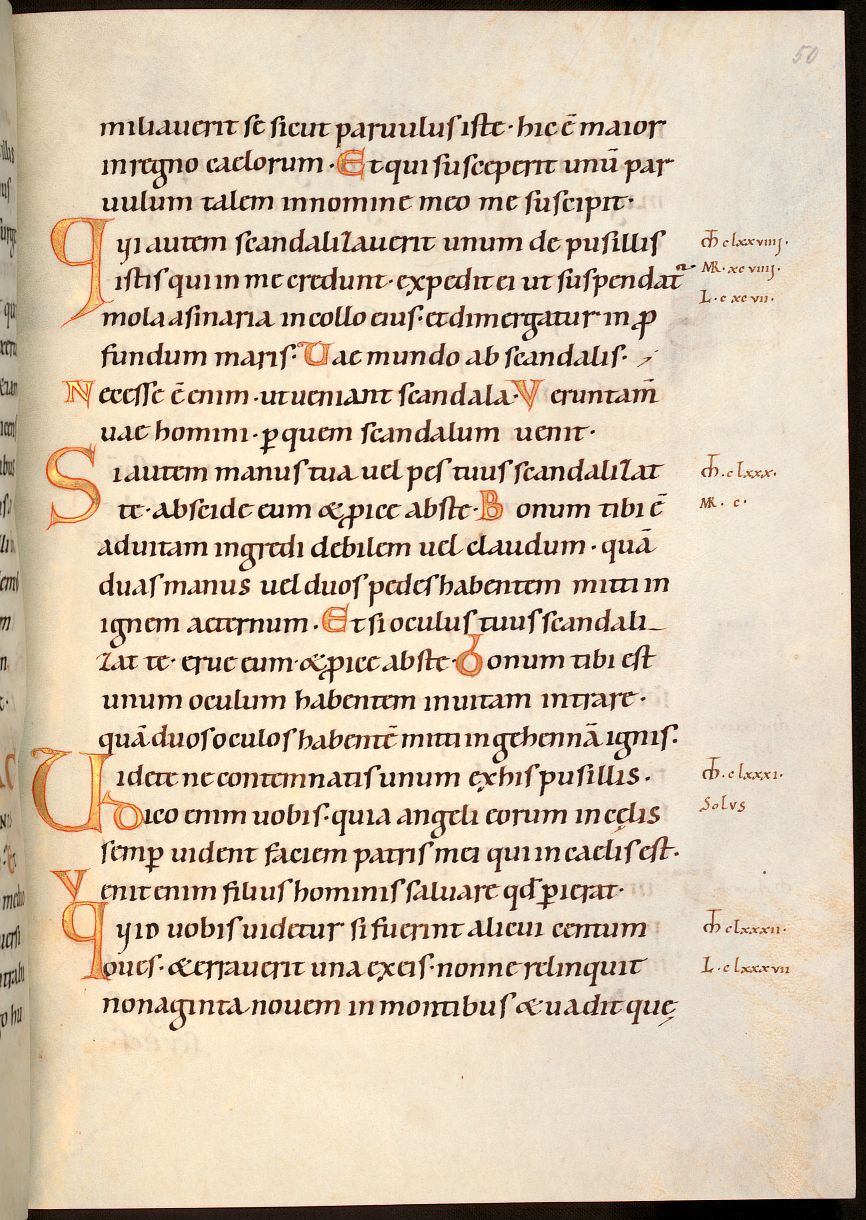 50
miliauerit se sicut paruulus iste · hic ē maior
in regno caelorum · Et qui susceperit unū par
uulum talem in nomine meo me suscipit ·
Qui autem scandalizauerit unum de pusillis
istis qui in me credunt · expedit ei ut suspendat᷑
mola asinaria in collo eius · et dimergatur in ꝓ
fundum maris · Uae mundo ab scandalis ·
Necesse ē enim · ut ueniant scandala · Veruntam̄
uae homini · ꝑ quem scandalum uenit ·
Si autem manus tua uel pes tuus scandalizat
te · abscide eum & ꝓice abs te · Bonum tibi ē
ad uitam ingredi debilem uel claudum · quā
duas manus uel duos pedes habentem mitti in
ignem aeternum · Et si oculus tuus scandali
zat te · erue eum · & ꝓice abs te · Bonum tibi est
unum oculum habentem in uitam intrare ·
quā duos oculos habentē mitti in gehennā ignis ·
Uidete ne contemnatis unum ex his pusillis ·
Dico enim uobis · quia angeli eorum in cęlis
semꝑ uident faciem patris mei qui in caelis est ·
Venit enim filius hominis saluare qđ ꝑierat ·
Quid uobis uidetur si fuerint alicui centum
oues · & errauerit una ex eis · nonne relinquit
nonaginta nouem in montibus & uadit quę
m̄ clxxviiij ·
MR · xcviiij ·
L · cxcvii ·
m̄ · clxxx ·
MR · c ·
m̄ · clxxxi ·
Solus
m̄ clxxxii ·
L · clxxxvii